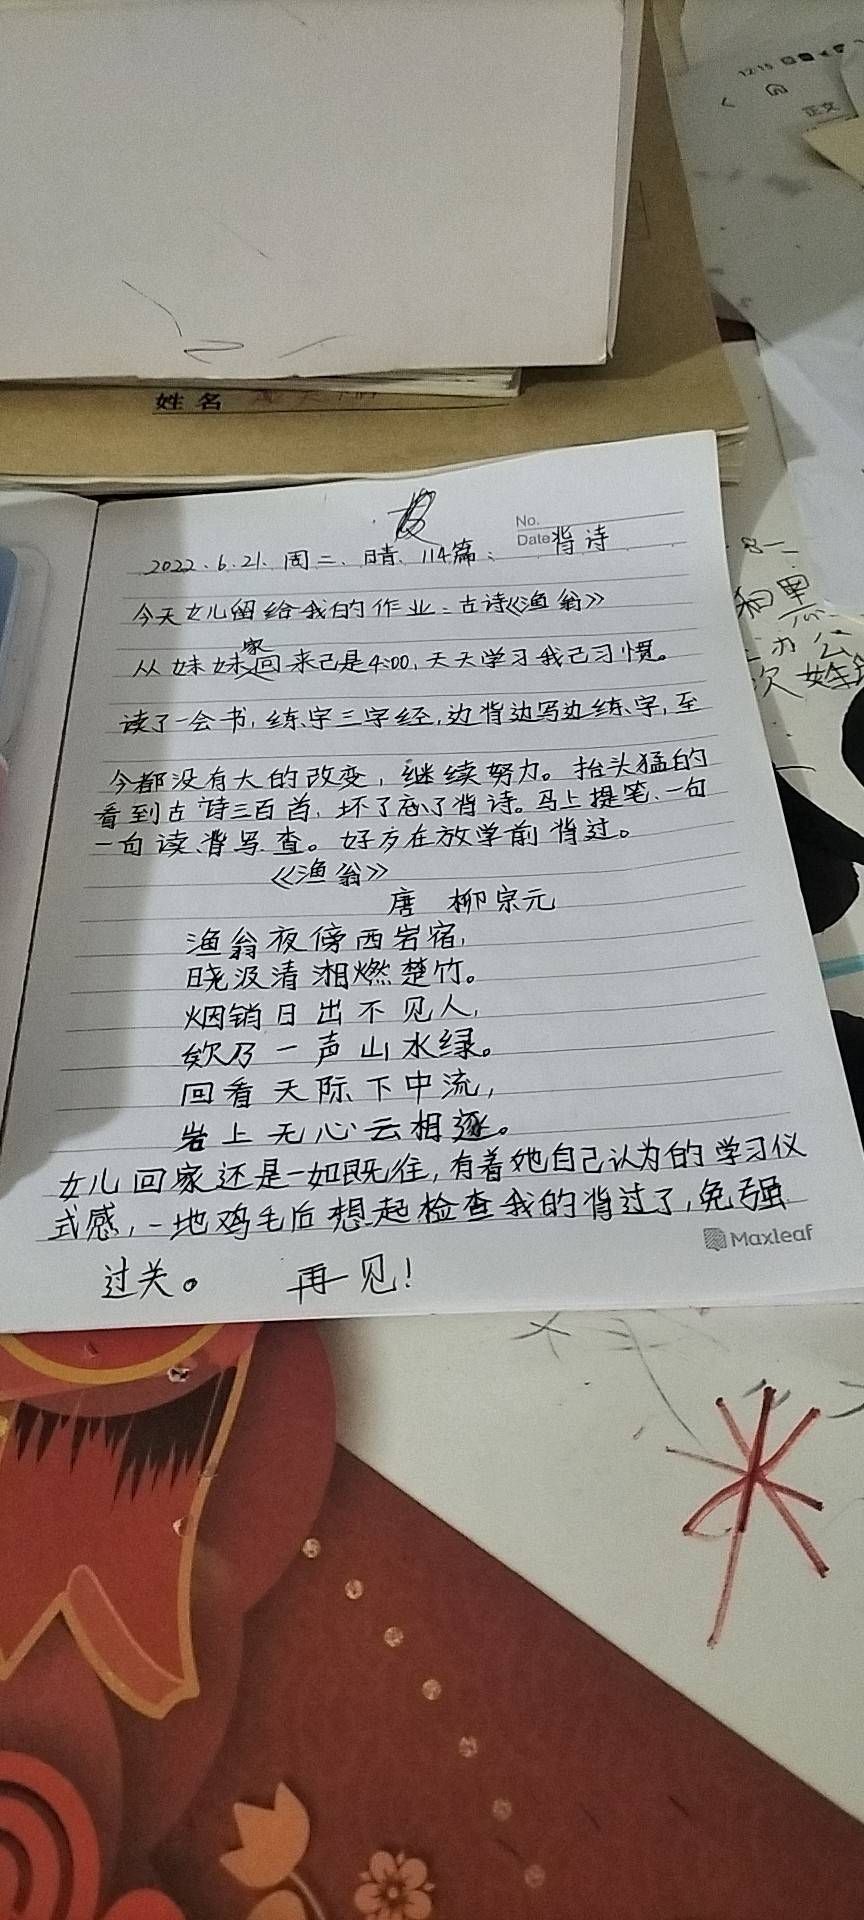 12:15
正文
姓名
No.
Date 背诗
2022.6.21.周二、晴、114篇：
今天女儿留给我的作业：古诗《渔翁》
从妹妹家回来已是4:00,天天学习我已习惯。
读了一会书,练字三字经,边背边写边练字,至
今都没有大的改变,继续努力。抬头猛的
看到古诗三百首,坏了忘了背诗。马上提笔、一句
一句读、背写查。好歹在放学前背过。
《渔翁》
唐 柳宗元
渔翁夜傍西岩宿,
晓汲清湘燃楚竹。
烟销日出不见人,
欸乃一声山水绿。
回看天际下中流,
岩上无心云相逐。
女儿回家还是一如既往,有着她自己认为的学习仪
式感,一地鸡毛后想起检查我的背过了,免强
过关。 再见!
Maxleaf
办公